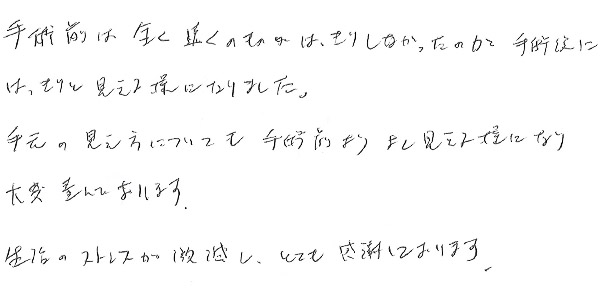 手術前は 全く 遠くのものが はっきりしなかったのが 手術後に
はっきりと 見える様になりました。
手元の見え方についても 手術前より よく見える様になり
大変 喜んでおります.
生活のストレスが 激減し、とても 感謝しております.